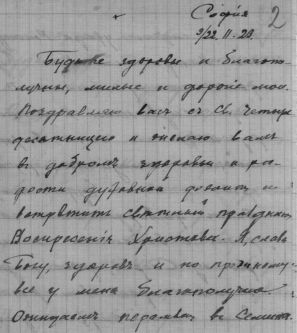 2
Софія
9/22. II-29.
Будьте здоровы и благопо-
лучны, милые и дорогіе мои.
Поздравляю васъ съ Св. Четыре-
десятницею и желаю вамъ
въ добромъ здоровьи и ра-
дости духовной дождать и
встрѣтить свѣтлый праздникъ
Воскресенія Христова. Я, слава
Богу, здоровъ и по прежнему
все у меня благополучно.
Ожидаемъ перемѣнъ въ Семина-